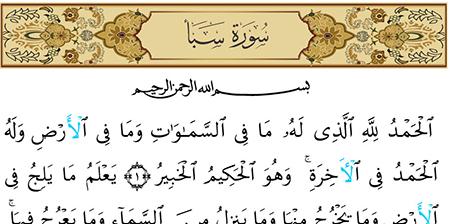 سُورَةُ سَبَأ
بِسْمِ اللَّهِ الرَّحْمَٰنِ الرَّحِيمِ
ٱلْحَمْدُ لِلَّهِ ٱلَّذِى لَهُۥ مَا فِى ٱلسَّمَٰوَٰتِ وَمَا فِى ٱلْأَرْضِ وَلَهُ
ٱلْحَمْدُ فِى ٱلْـَٔاخِرَةِ ۚ وَهُوَ ٱلْحَكِيمُ ٱلْخَبِيرُ ﴿١﴾ يَعْلَمُ مَا يَلِجُ فِى
ٱلْأَرْضِ وَمَا يَخْرُجُ مِنْهَا وَمَا يَنزِلُ مِنَ ٱلسَّمَآءِ وَمَا يَعْرُجُ فِيهَا ۚ